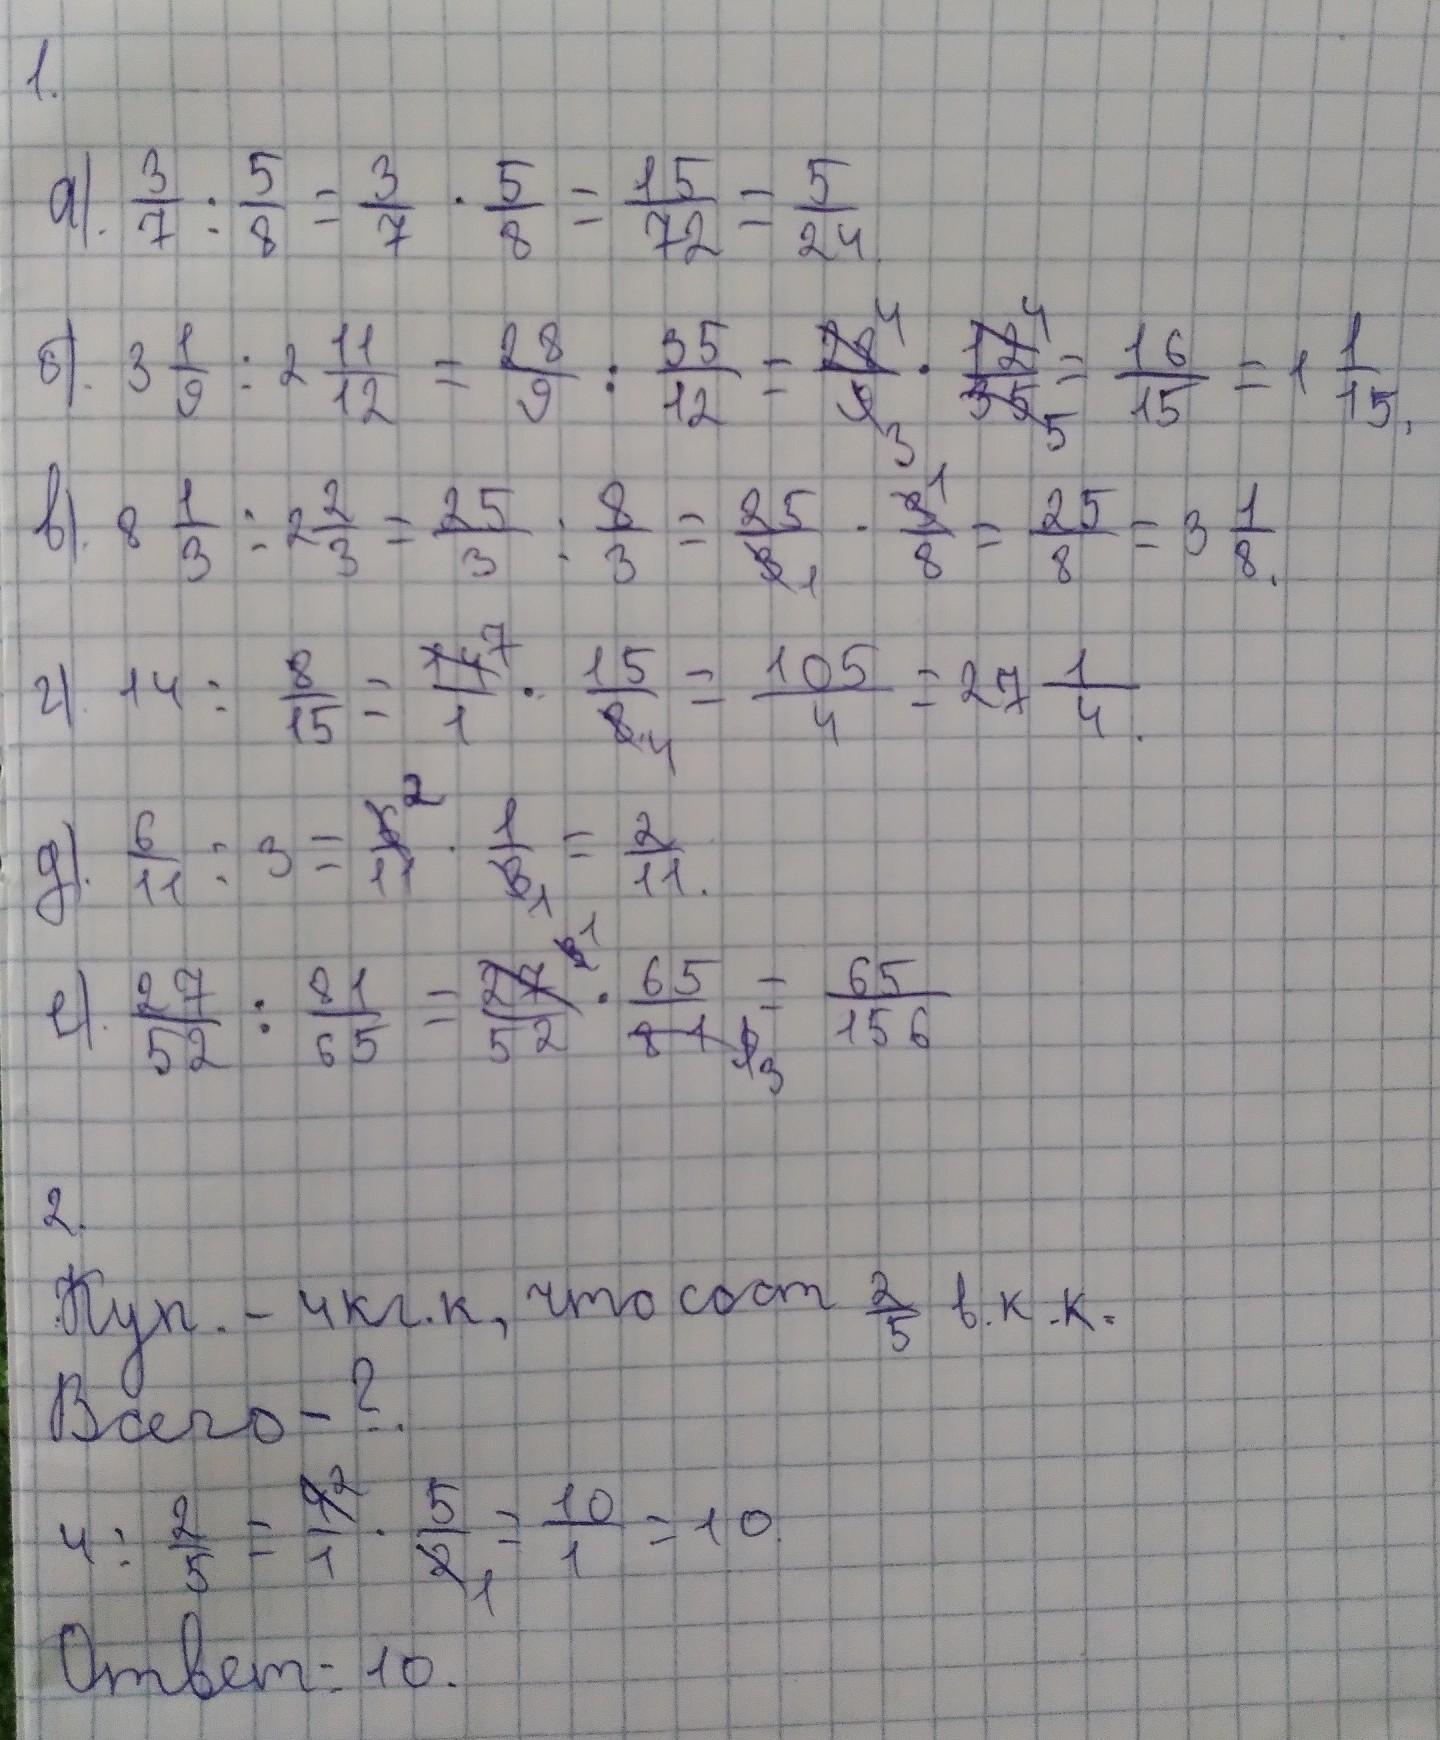 1.
а). 3/7 : 5/8 = 3/7 · 5/8 = 15/72 = 5/24.
б). 3 1/9 : 2 11/12 = 28/9 : 35/12 = 28 4/9 3 · 12 4/35 5 = 16/15 = 1 1/15.
в). 8 1/3 : 2 2/3 = 25/3 : 8/3 = 25/3 1 · 3 1/8 = 25/8 = 3 1/8.
г). 14 : 8/15 = 14 7/1 · 15/8 4 = 105/4 = 27 1/4.
д). 6/11 : 3 = 6 2/11 · 1/3 1 = 2/11.
е). 27/52 : 81/65 = 27 1/52 · 65/81 3 = 65/156
2.
Куп. - 4кг.к, что сост 2/5 в.к.к.
Всего - ?.
4 : 2/5 = 4 2/1 · 5/2 1 = 10/1 = 10.
Ответ: 10.